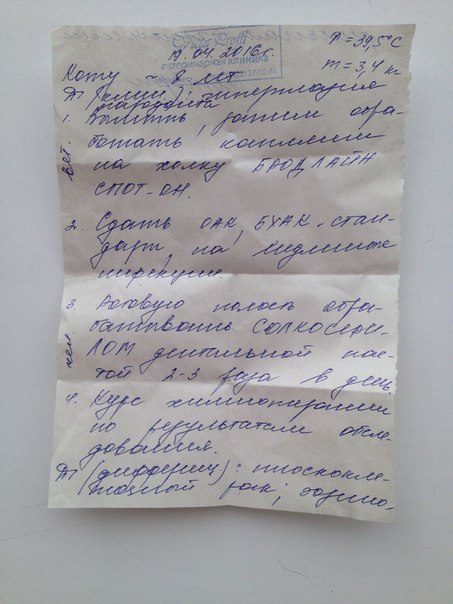 19.04.2016г.
T = 39,5°C
ветеринарная клиника
m = 3,4 кг
Коту ~ 8 лет
Dz (клин.): гиперплазия
пародонта
1. Вымыть, затем обра-
ботать каплями
на холку БРОДЛАЙН
СПОТ-ОН.
вет.
2. Сдать ОАК, БХАК-стан-
дарт, на
инфекции.
3. Ротовую полость обра-
батывать СОЛКОСЕРИ-
ЛОМ дентальной пас-
той 2-3 раза в день.
4. Курс химиотерапии
по результатам обсле-
дования.
Dz (дифференц): плоскокле-
точный рак; эозино-